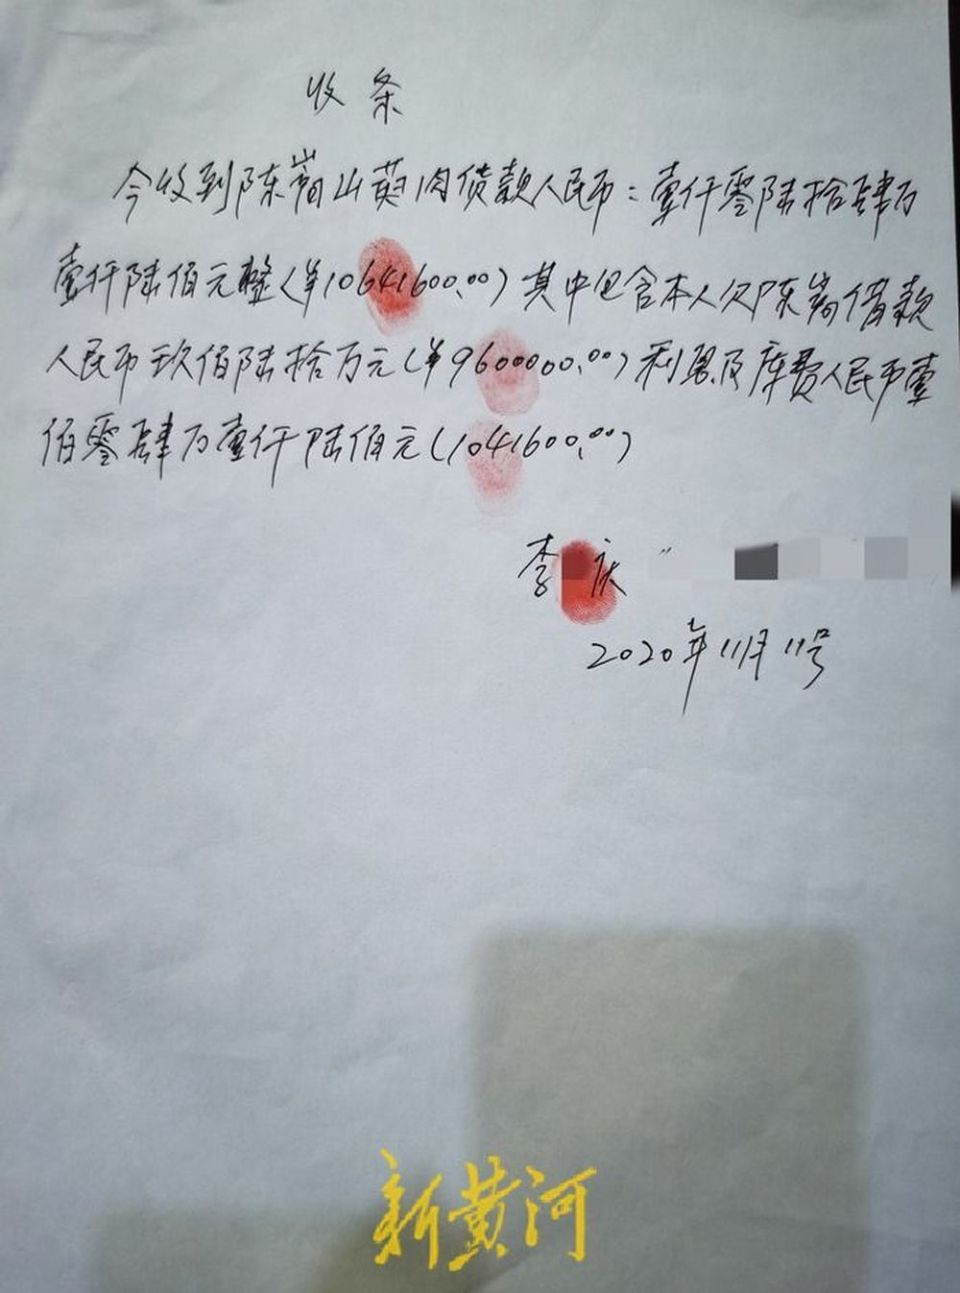 收条
今收到陈嵩山萸肉货款人民币：壹仟零陆拾肆万
壹仟陆佰元整（¥10641600.00）其中包含本人欠陈嵩借款
人民币玖佰陆拾万元（¥9600000.00）利息及库费人民币壹
佰零肆万壹仟陆佰元（1041600.00）
李 庆
2020年11月11号
新黄河